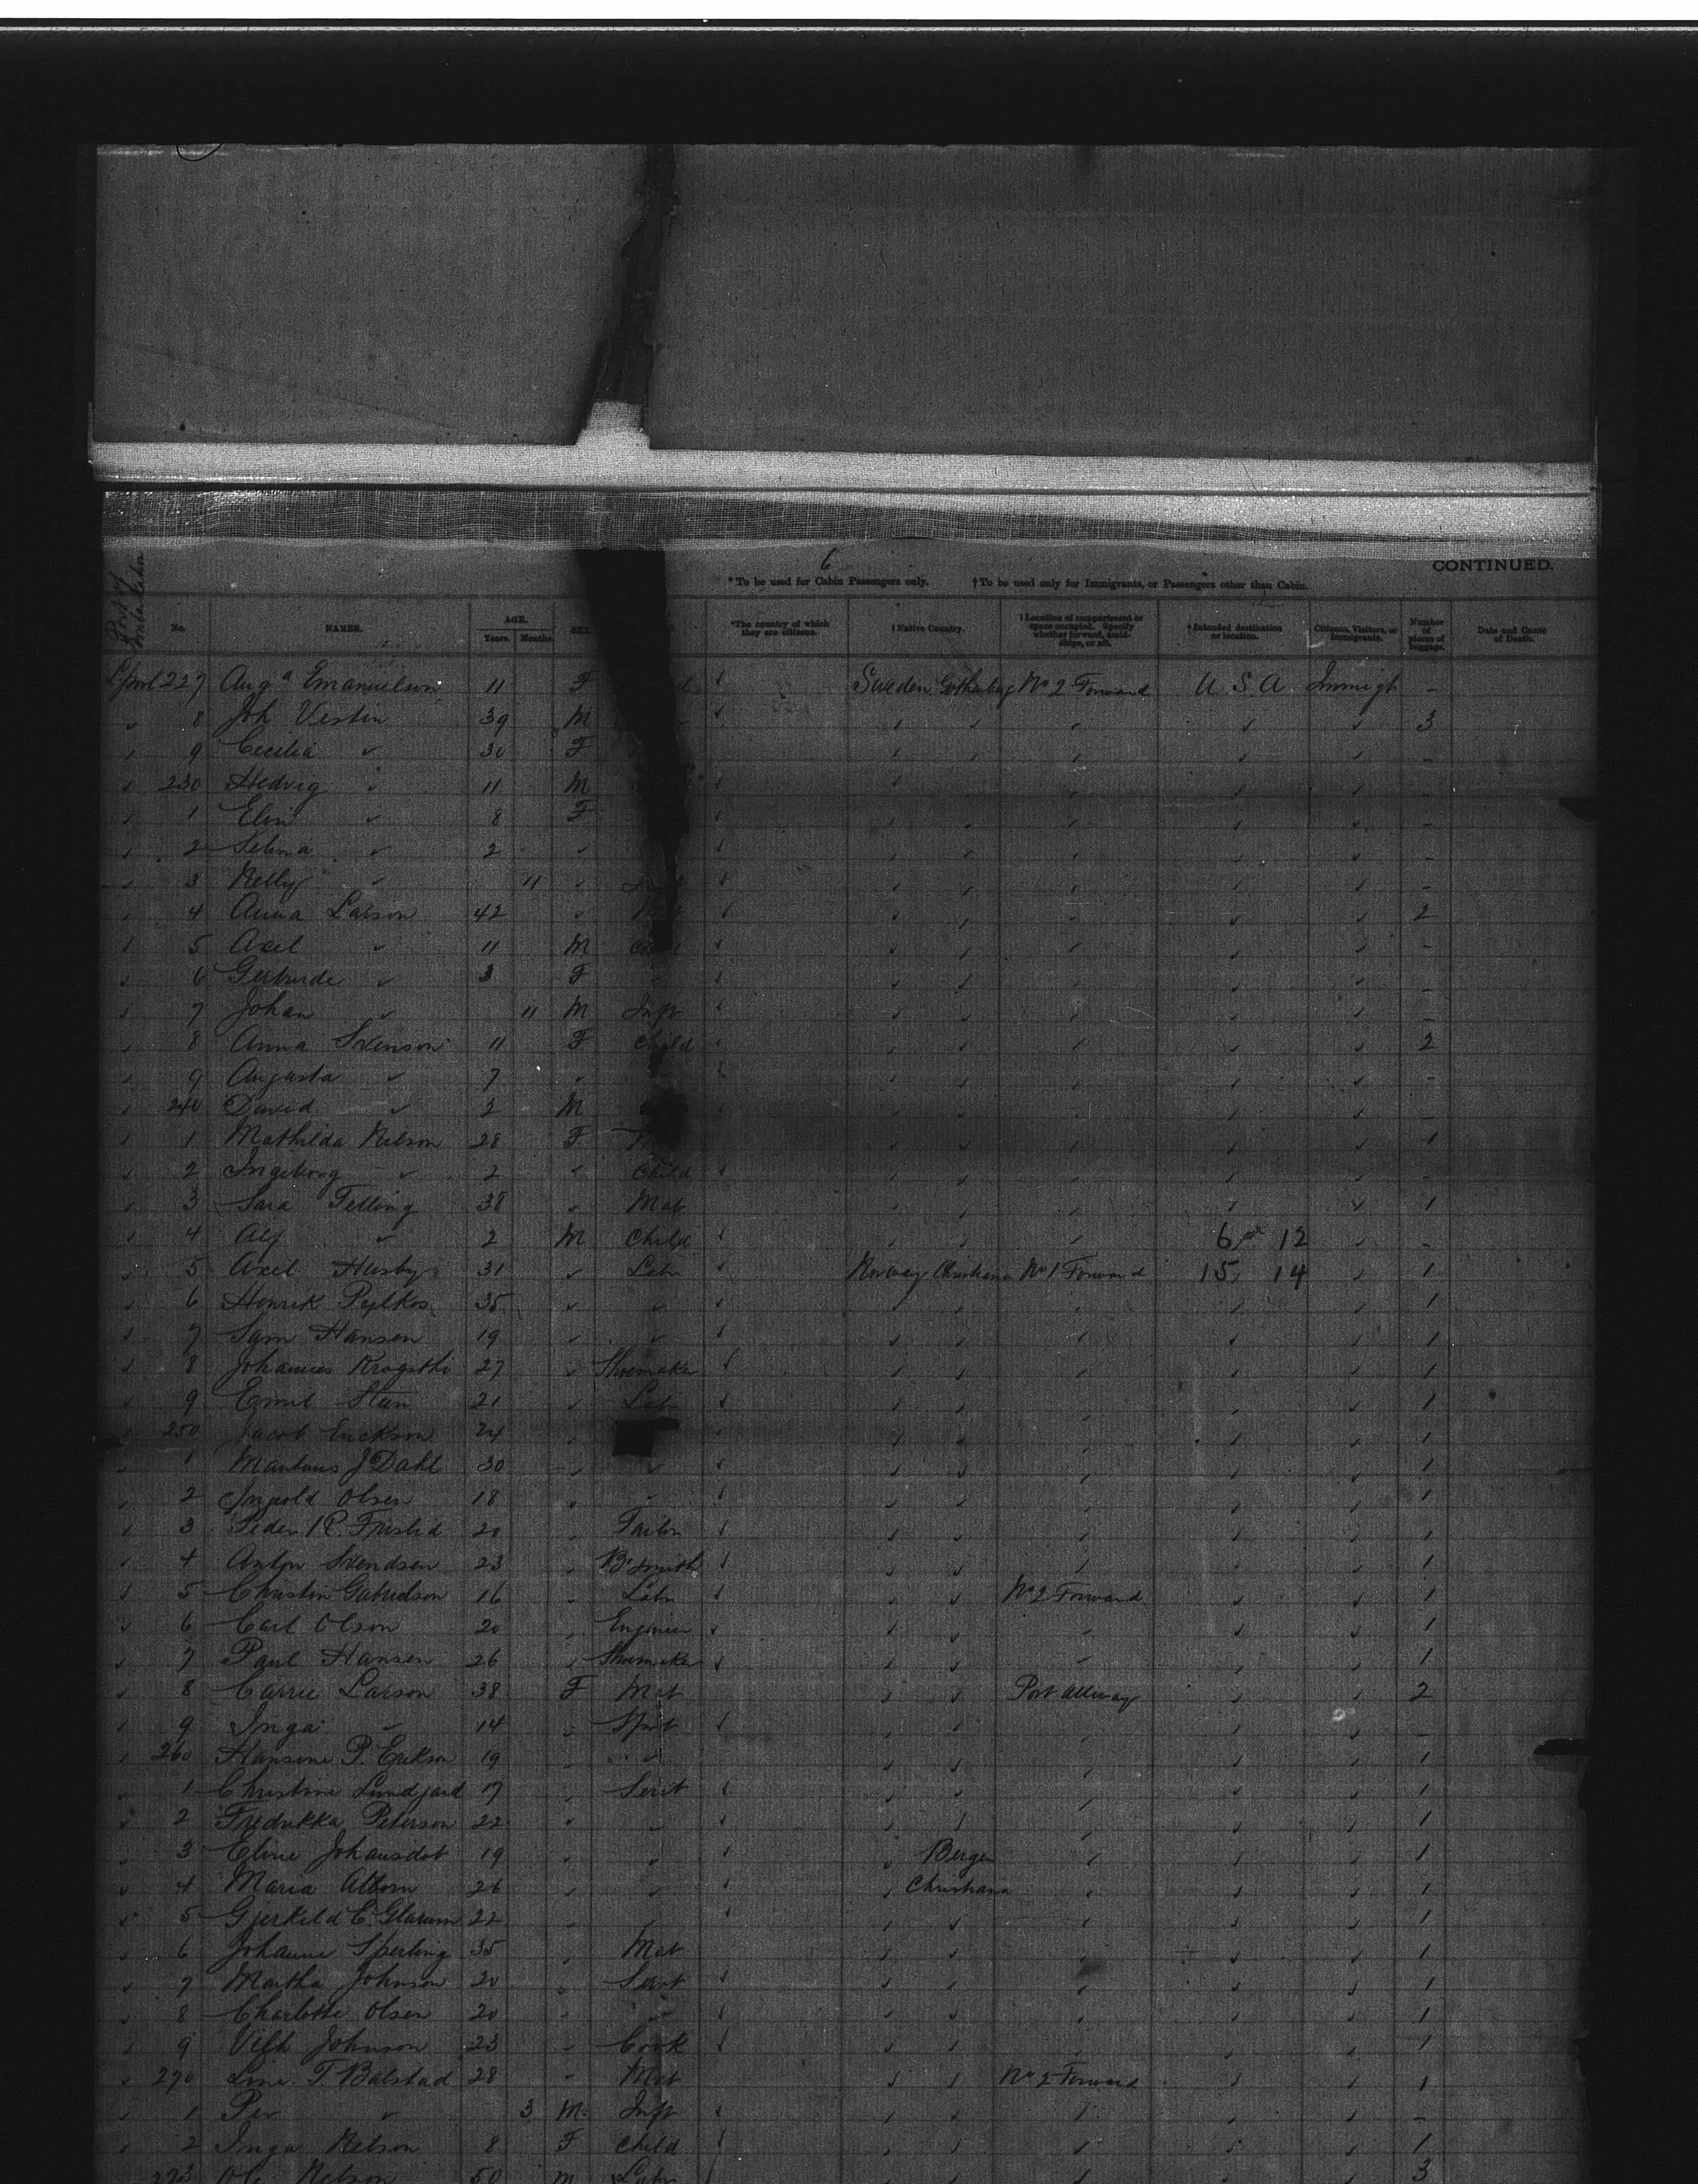 6
CONTINUED.
*To be used for Cabin Passengers only. †To be used only for Immigrants, or Passengers other than Cabin.
Port of Embarkation
No. NAMES. AGE. Years. Months. SEX. *The country of which they are citizens. †Native Country. †Location of compartment or space occupied. Specify whether forward, amidships, or aft. †Intended destination or location. Citizens, Visitors, or Immigrants. Number of pieces of baggage. Date and Cause of Death.
L'pool 227 Augᵃ Emanuelson 11 F Sweden Gothenburg Nº 2 Forward U.S.A Immigt -
8 Joh Vestin 39 M 3
9 Cecilia 30 F -
230 Hedvig 11 M -
1 Elin 8 F -
2 Selma 2 -
3 Nelly 11 -
4 Anna Larson 42 2
5 Axel 11 M -
6 Gertrude 3 F -
7 Johan 11 M Inft -
8 Anna Svenson 11 F Child 2
9 Augusta 7 -
240 David 2 M -
1 Mathilda Nilson 28 F 1
2 Ingeborg 2 Child -
3 Sara Felling 38 Mat 1
4 Alf 2 M Child 6 12 -
5 Axel Husby 31 Labr Norway Christiana Nº 1 Forward 15 14 1
6 Henrik 35 1
7 Sam Hansen 19 1
8 Johannes 27 Shoemaker 1
9 Emil Steen 21 Labr 1
250 Jacob Erickson 24 1
1 J Dahl 30 1
2 Olsen 18 1
3 Peder 20 Tailor 1
4 Anton Svendsen 23 Bˡsmith 1
5 16 Labr Nº 2 Forward 1
6 Carl Olson 20 Engineer 1
7 Paul Hansen 26 Shoemaker 1
8 Carrie Larson 38 F Mat Port Alleway 2
9 Inga 14 Spst -
260 Hansine P. Erikson 19 1
1 Christine 17 Servt 1
2 Fredrikka Peterson 22 1
3 Eline Johansdot 19 Bergen 1
4 Maria 26 Christiana 1
5 22 1
6 Johanne Sperling 35 Mat 1
7 Martha Johnson 20 Servt 1
8 Charlotte Olsen 20 1
9 Johnson 23 Cook 1
270 Line T. Balstad 28 Mat Nº 2 Forward 1
1 Per 3 M Inft -
2 Inga Nelson 8 F Child 1
273 Ole Nelson 50 M Labr 3